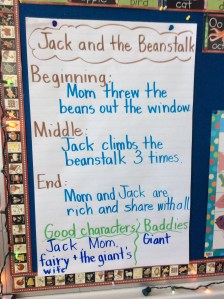 Jack and the Beanstalk
Beginning:
Mom threw the
beans out the window.
Middle:
Jack climbs the
beanstalk 3 times.
End:
Mom and Jack are
rich and share with all.
Good characters Baddies
Jack, Mom, Giant
fairy + the giant's
wife